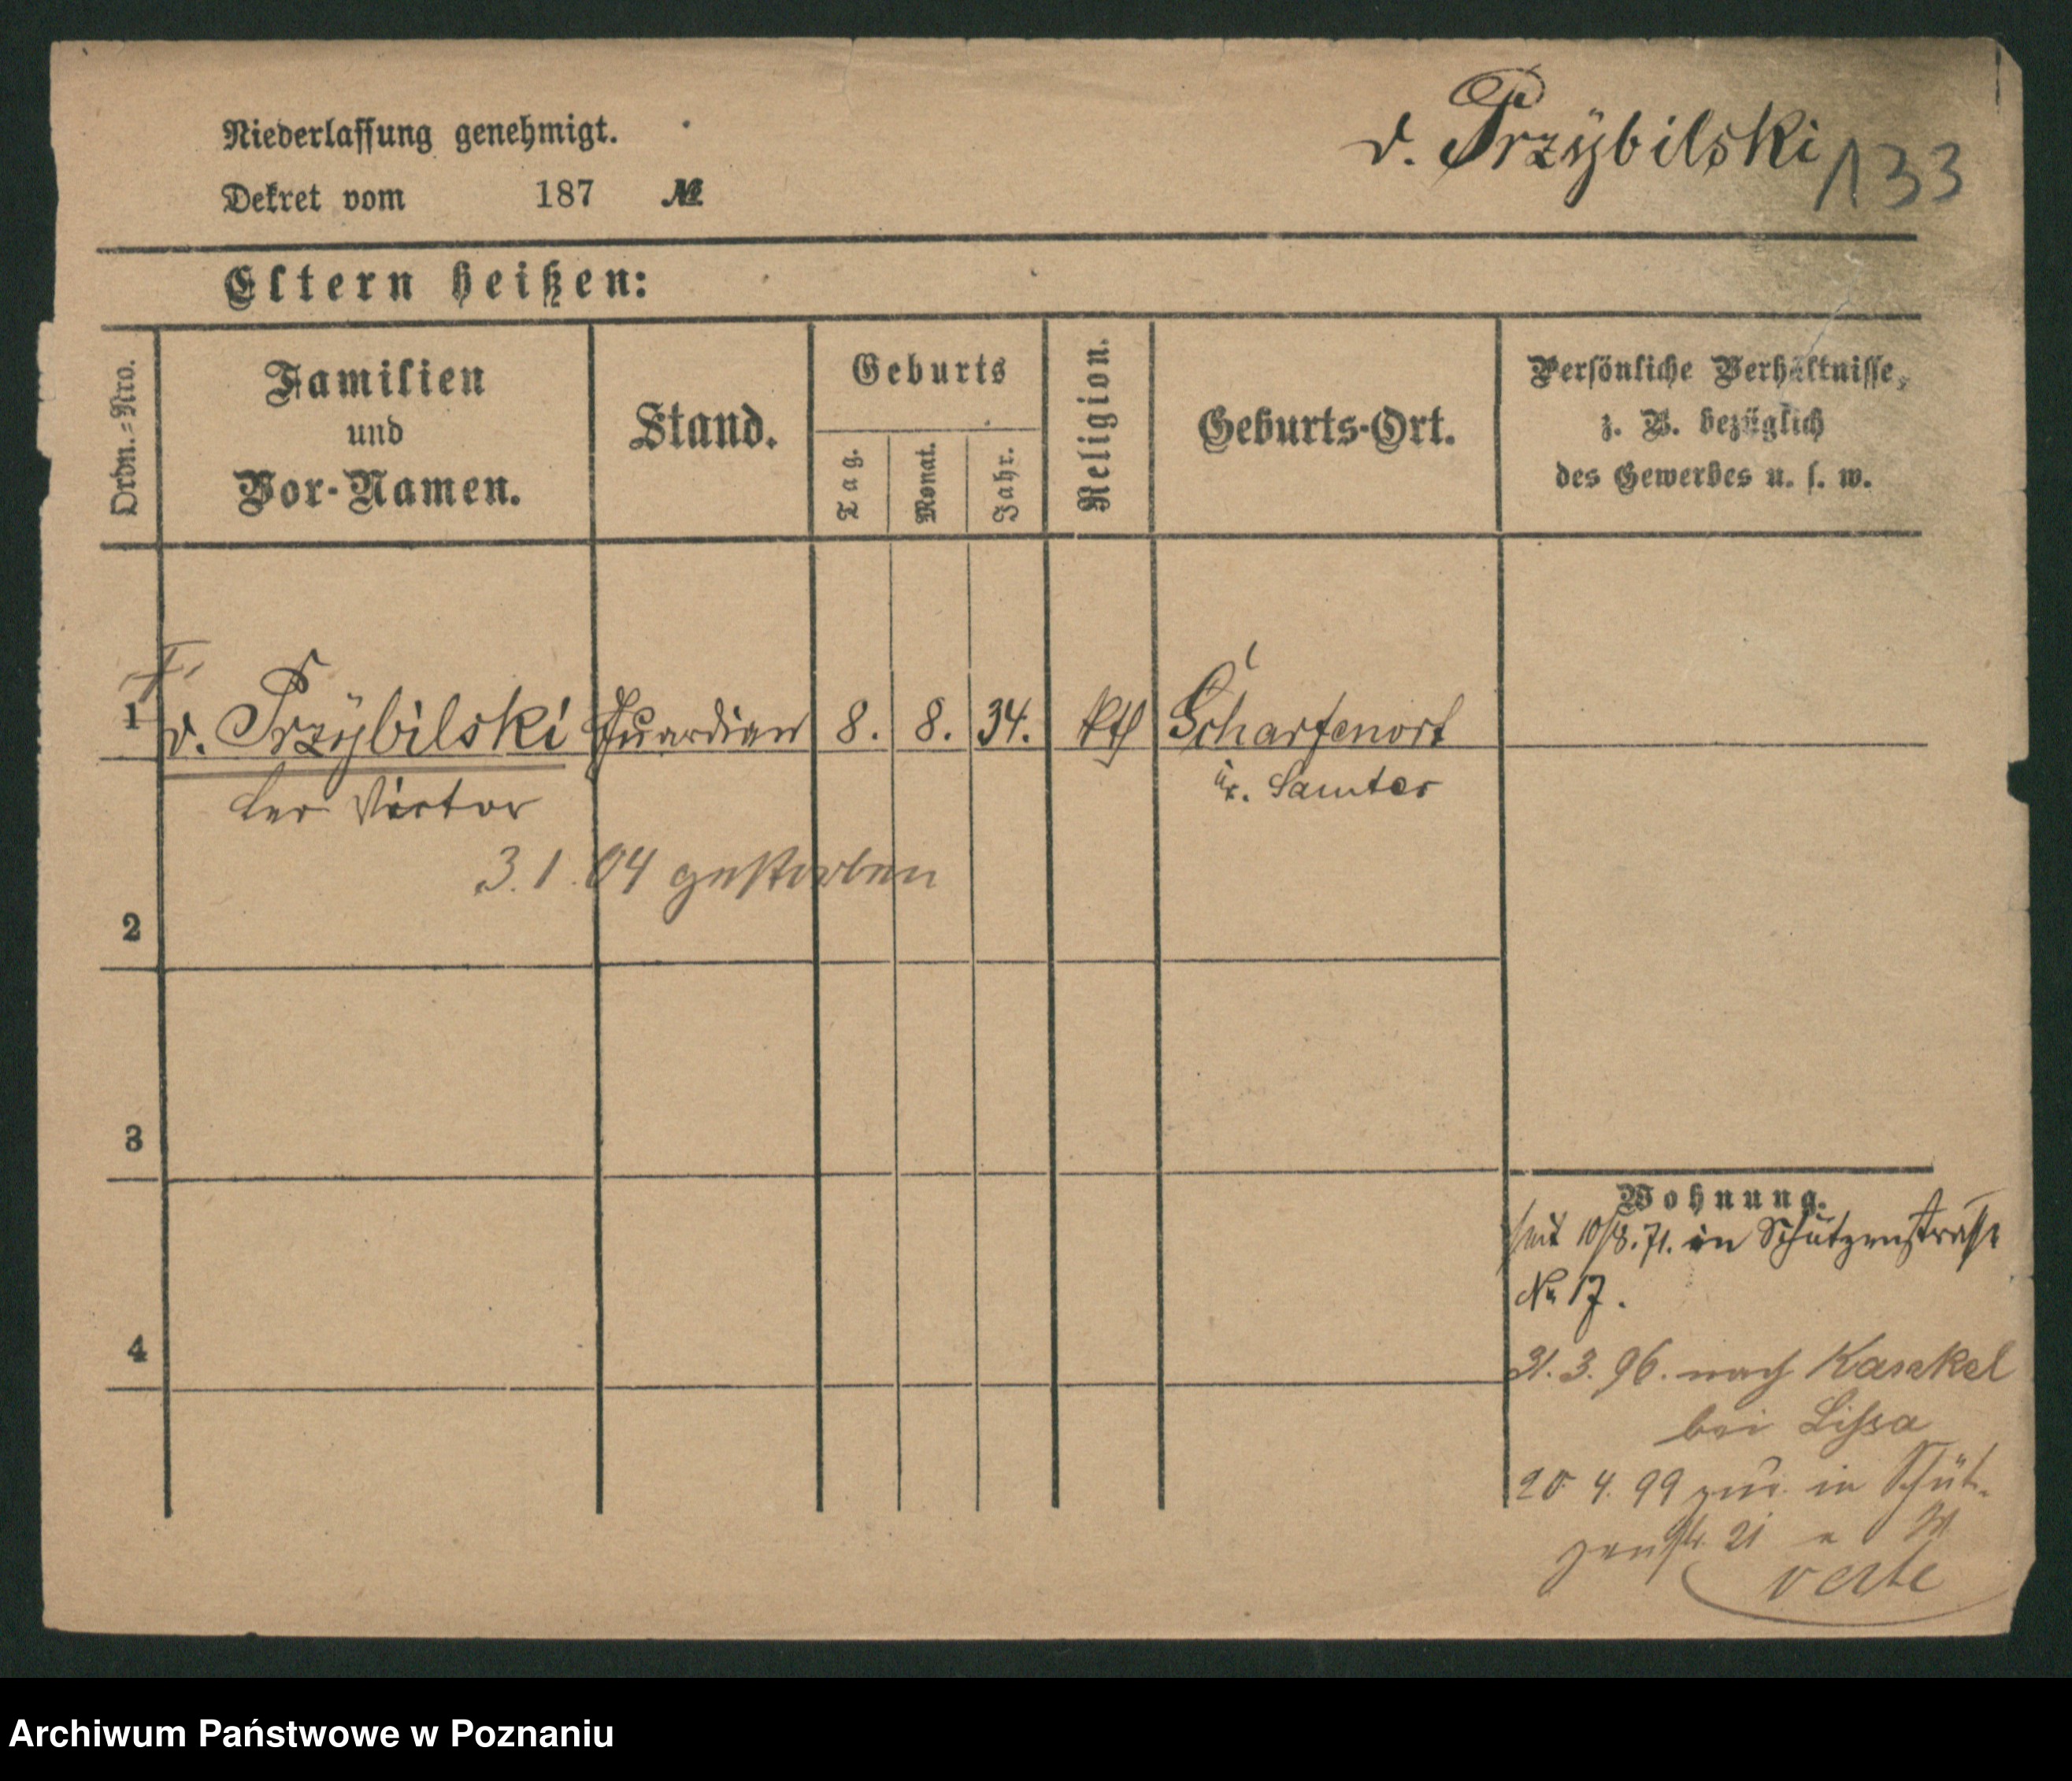 Niederlassung genehmigt.
v. Przÿbilski 133
Dekret vom 187 №
Eltern heißen:
Ordn.=Nro.
Familien
und
Vor-Namen.
Stand.
Geburts
Tag.
Monat.
Jahr.
Religion.
Geburts-Ort.
Persönliche Verhältnisse,
z. B. bezüglich
des Gewerbes u. s. w.
1 v. Przÿbilski Guardian 8. 8. 34. kth Scharfenort
Victor
Kr. Samter
3. 1. 04 gestorben
2
3
4
Wohnung.
seit 10/8. 71. in Schützenstrasse
No 17.
31. 3. 96. nach Kankel
bei Lissa
20 4. 99 zur. in Schüt-
zenstr. 21
verte
Archiwum Państwowe w Poznaniu